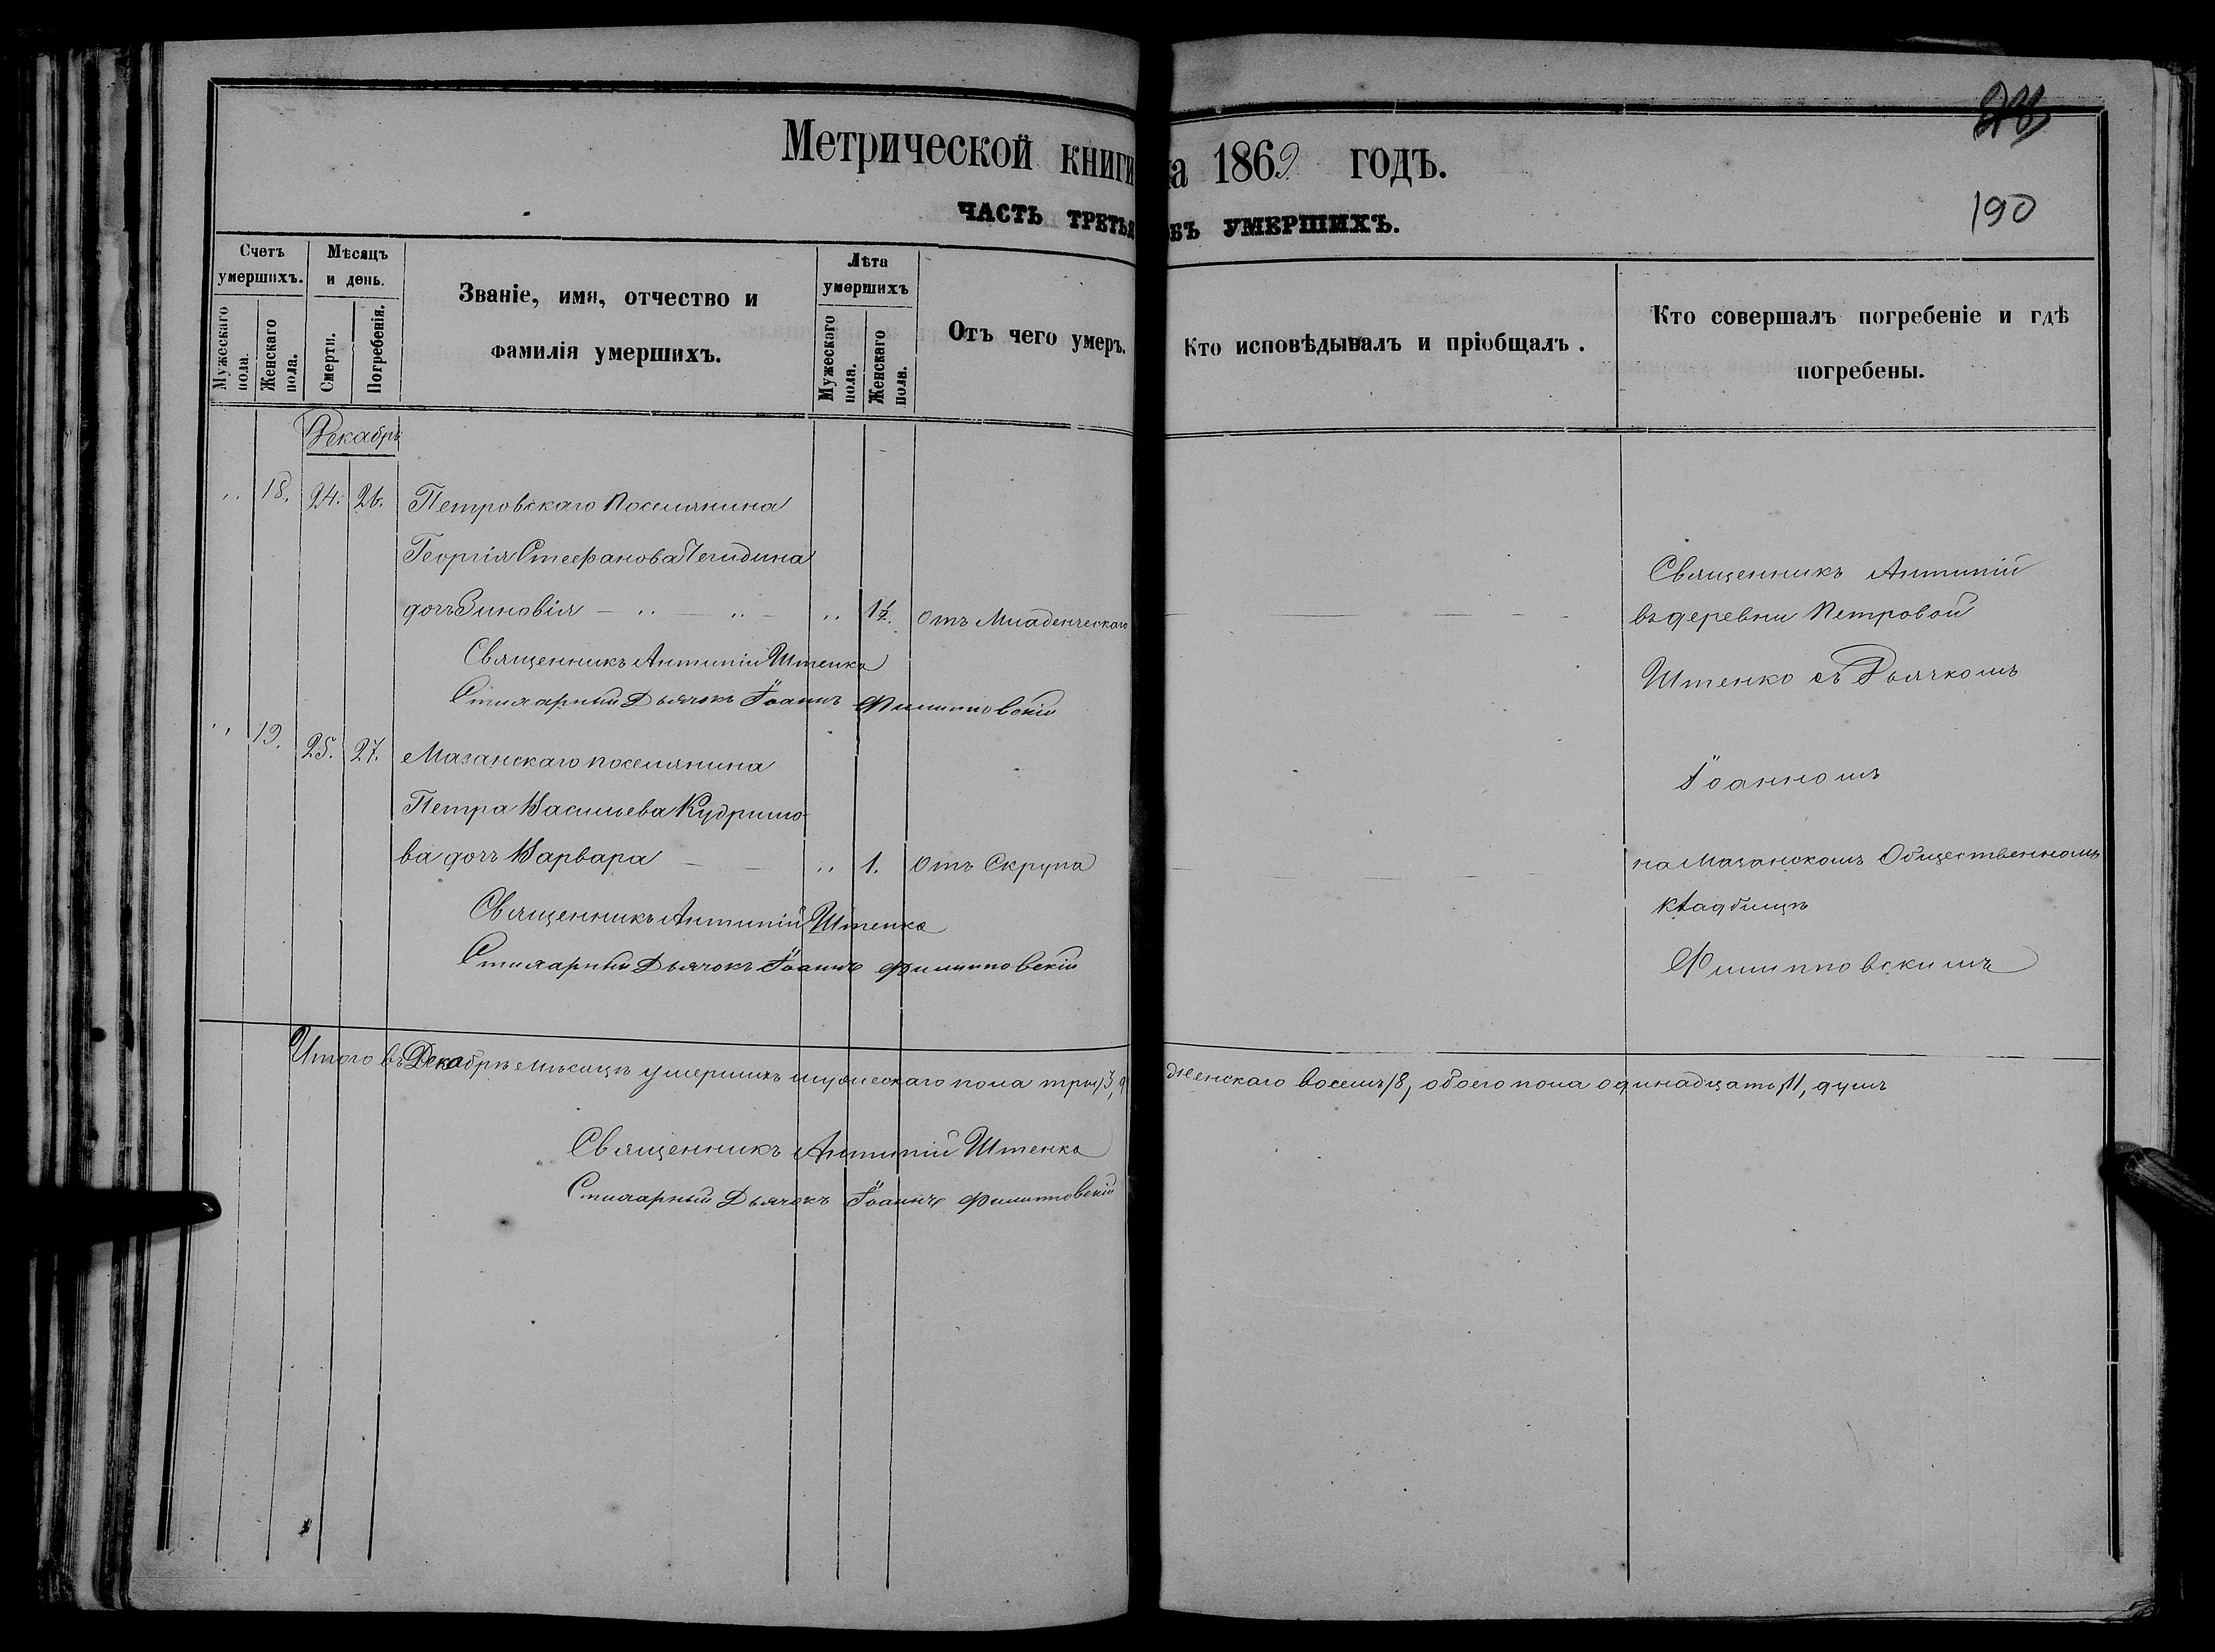 Метрической книги на 1869 годъ.
190
ЧАСТЬ ТРЕТЬЯ ОБЪ УМЕРШИХЪ.
Счетъ умершихъ.
Мужескаго пола.
Женскаго пола.
Мѣсяцъ и день.
Смерти.
Погребенія.
Званіе, имя, отчество и фамилія умершихъ.
Лѣта умершихъ
Мужескаго пола.
Женскаго пола.
Отъ чего умеръ.
Кто исповѣдывалъ и пріобщалъ.
Кто совершалъ погребеніе и гдѣ погребены.
Декабрь
„ 18. 24. 26. Петровскаго поселянина
Георгія Стефанова Чегидина
дочь Зиновія — „ — „ — „ 1½. Отъ Младенческаго
Священникъ Антипій Штенко
Стихарный Дьячокъ Іоаннъ Филипповскій
Священникъ Антипій
въ деревни Петровой
Штенко съ Дьячкомъ
„ 19. 25. 27. Мазанскаго поселянина
Петра Васильева Кудришо-
ва дочь Варвара — — „ 1. Отъ Скрупа
Священникъ Антипій Штенко
Стихарный Дьячокъ Іоаннъ Филипповскій
Іоанномъ
на Мазанскомъ Общественномъ
кладбищѣ
Филипповскимъ
Итого въ Декабрѣ мѣсяцѣ умершихъ мужескаго пола три /3, женскаго восемь /8, обоего пола одинадцать /11, душъ
Священникъ Антипій Штенко
Стихарный Дьячокъ Іоаннъ Филипповскій